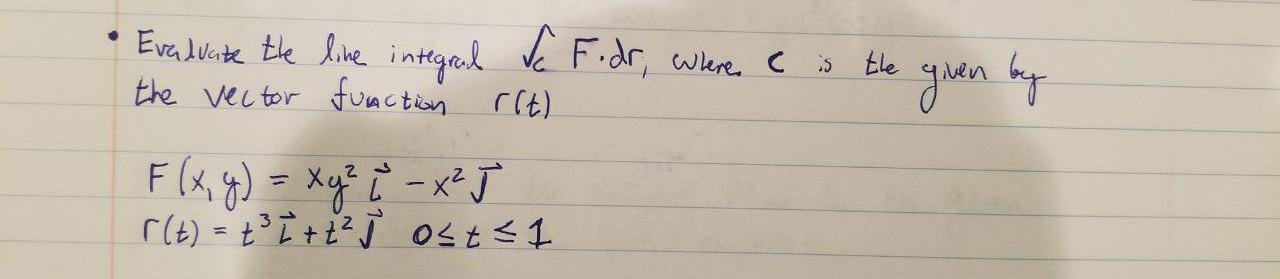 • Evaluate the line integral ∫c F·dr, where C is the given by
the vector function r(t)
F(x,y) = xy² i⃗ - x² j⃗
r(t) = t³ i⃗ + t² j⃗ 0 ≤ t ≤ 1